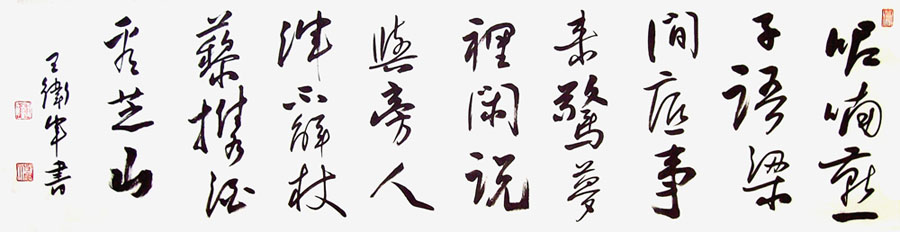 呢喃燕
子語梁
間底事
来驚夢
裡闲説
與旁人
渾不解杖
藜携酒
看芝山
王衛軍書